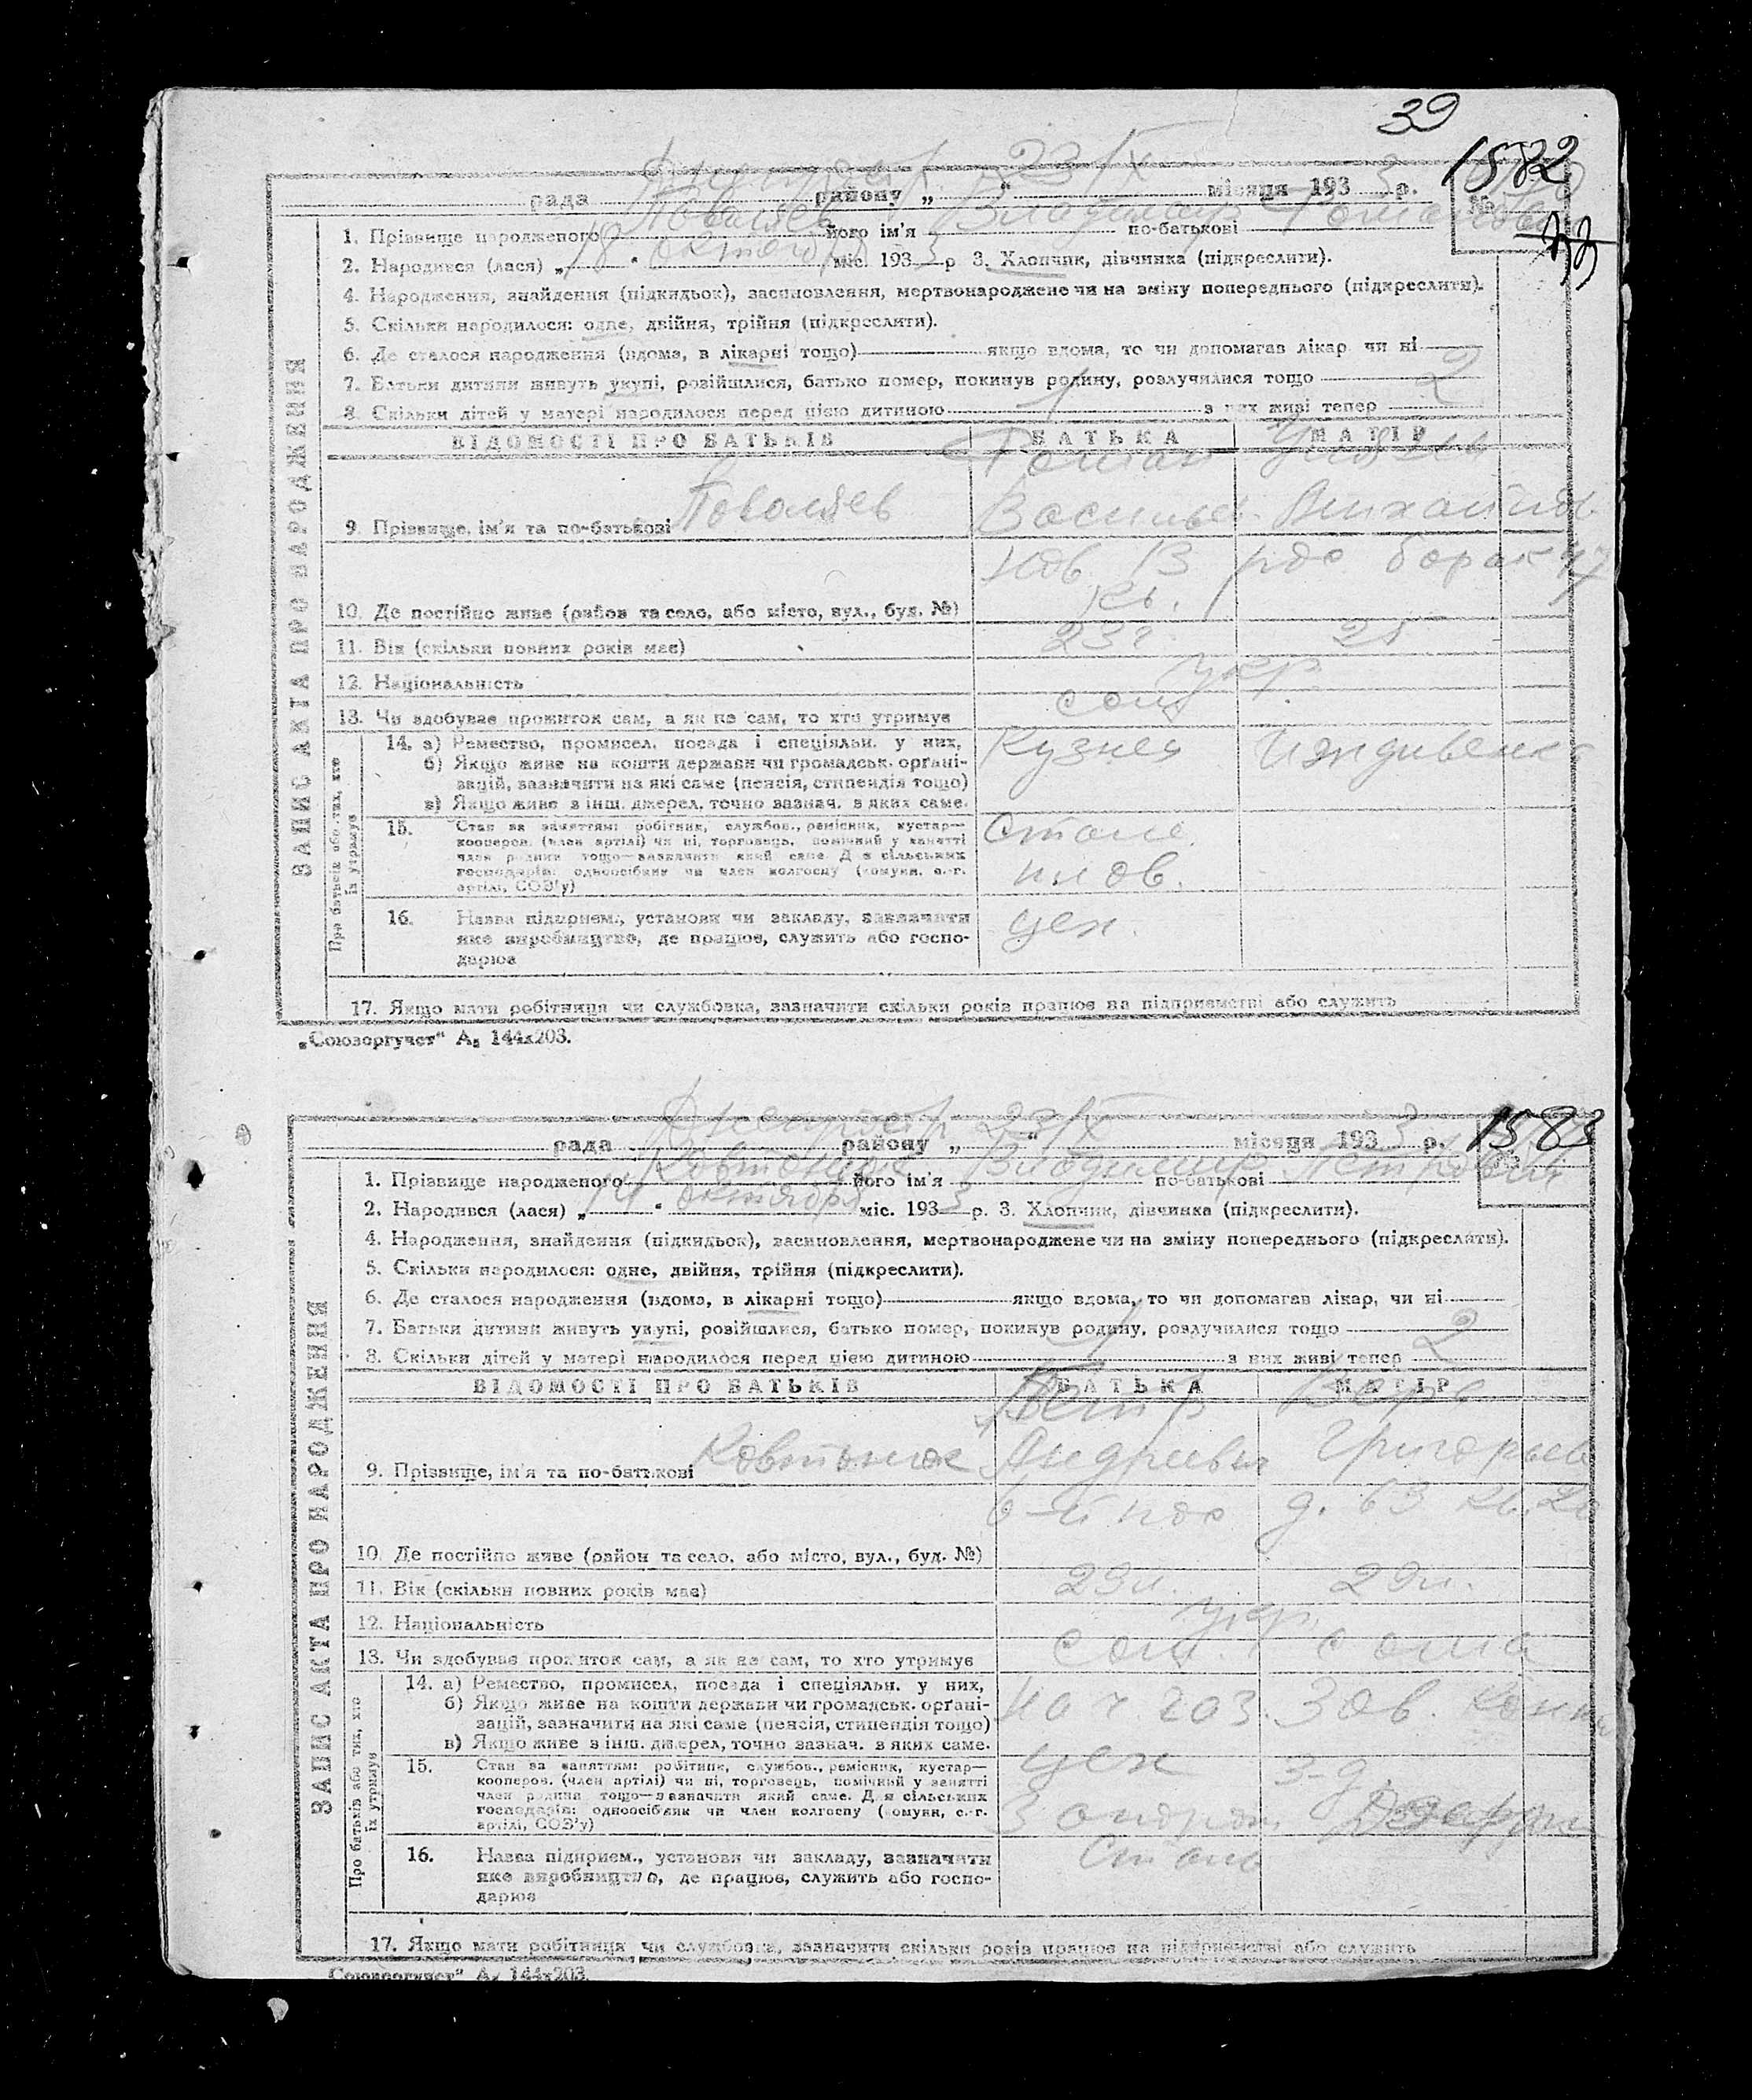 39
1582
рада району „ 23/X “ місяця 193 3 р. №
1. Прізвище народженого Поваляев його ім'я Владимир по-батькові Романов
2. Народився (лася) „ 18 " октября міс. 193 3 р 3. Хлопчик, дівчинка (підкреслити).
4. Народження, знайдення (підкидьок), засиновлення, мертвонароджене чи на зміну попереднього (підкреслити).
5. Скільки народилося: одне, двійня, трійня (підкреслити).
6. Де сталося народження (вдома, в лікарні тощо) якщо вдома, то чи допомагав лікар чи ні
7. Батьки дитини живуть укупі, розійшлися, батько помер, покинув родину, розлучилися тощо
8. Скільки дітей у матері народилося перед цією дитиною 1 з них живі тепер 2
ЗАПИС АКТА ПРО НАРОДЖЕННЯ
ВІДОМОСТІ ПРО БАТЬКІВ БАТЬКА МАТІР
Роман
9. Прізвище, ім'я та по-батькові Поваляев Васильев Михайлов
13 барак 47
кв.
10. Де постійно живе (район та село, або місто, вул., буд. №)
11. Вік (скільки повних років має) 23
12. Національність укр.
13. Чи здобуває прожиток сам, а як не сам, то хто утримує сам
Про батьків або тих, хто їх утримує
14. а) Ремество, промисел, посада і спеціяльн. у них, Кузнец Иждивенка
б) Якщо живе на кошти держави чи громадськ. орґані-
зацій, зазначити на які саме (пенсія, стипендія тощо)
в) Якщо живе з інш. джерел, точно зазнач. з яких саме.
15. Стан за заняттям: робітник, службов., ремісник, кустар— Стале
кооперов. (член артілі) чи ні, торговець, помічний у занятті
член родини тощо—зазначити який саме. Для сільських
господарів: одноосібник чи член колгоспу (комуни, с.-г.
артілі, СОЗ'у)
16. Назва підприєм., установи чи закладу, зазначити цех.
яке виробництво, де працює, служить або госпо-
дарює
17. Якщо мати робітниця чи службовка, зазначити скільки років працює на підприємстві або служить
„Союзоргучет" А5 144х203.
1583
рада району „ 23/X “ місяця 193 3 р.
1. Прізвище народженого Ковтонюк його ім'я Владимир по-батькові Петрович
2. Народився (лася) „ 14 " октября міс. 193 3 р. 3. Хлопчик, дівчинка (підкреслити).
4. Народження, знайдення (підкидьок), засиновлення, мертвонароджене чи на зміну попереднього (підкреслити).
5. Скільки народилося: одне, двійня, трійня (підкреслити).
6. Де сталося народження (вдома, в лікарні тощо) якщо вдома, то чи допомагав лікар, чи ні
7. Батьки дитини живуть укупі, розійшлися, батько помер, покинув родину, розлучилися тощо
8. Скільки дітей у матері народилося перед цією дитиною 1 з них живі тепер 2
ЗАПИС АКТА ПРО НАРОДЖЕННЯ
ВІДОМОСТІ ПРО БАТЬКІВ БАТЬКА МАТІР
Петр Вера
9. Прізвище, ім'я та по-батькові Ковтонюк Андреевич Григорьев
6-й пос д. 63 кв. 20
10. Де постійно живе (район та село, або місто, вул., буд. №)
11. Вік (скільки повних років має) 29 л. 29 л.
12. Національність укр.
13. Чи здобуває прожиток сам, а як не сам, то хто утримує сам сама
Про батьків або тих, хто їх утримує
14. а) Ремество, промисел, посада і спеціяльн. у них, нач. газ. Зав.
б) Якщо живе на кошти держави чи громадськ. орґані-
зацій, зазначити на які саме (пенсія, стипендія тощо)
в) Якщо живе з інш. джерел, точно зазнач. з яких саме.
цех з-д
15. Стан за заняттям: робітник, службов., ремісник, кустар—
кооперов. (член артілі) чи ні, торговець, помічний у занятті
член родини тощо—зазначити який саме. Для сільських
господарів: одноосібник чи член колгоспу (комуни, с.-г.
артілі, СОЗ'у)
16. Назва підприєм., установи чи закладу, зазначити Сталь
яке виробництво, де працює, служить або госпо-
дарює
17. Якщо мати робітниця чи службовка, зазначити скільки років працює на підприємстві або служить
„Союзоргучет" А5 144х203.